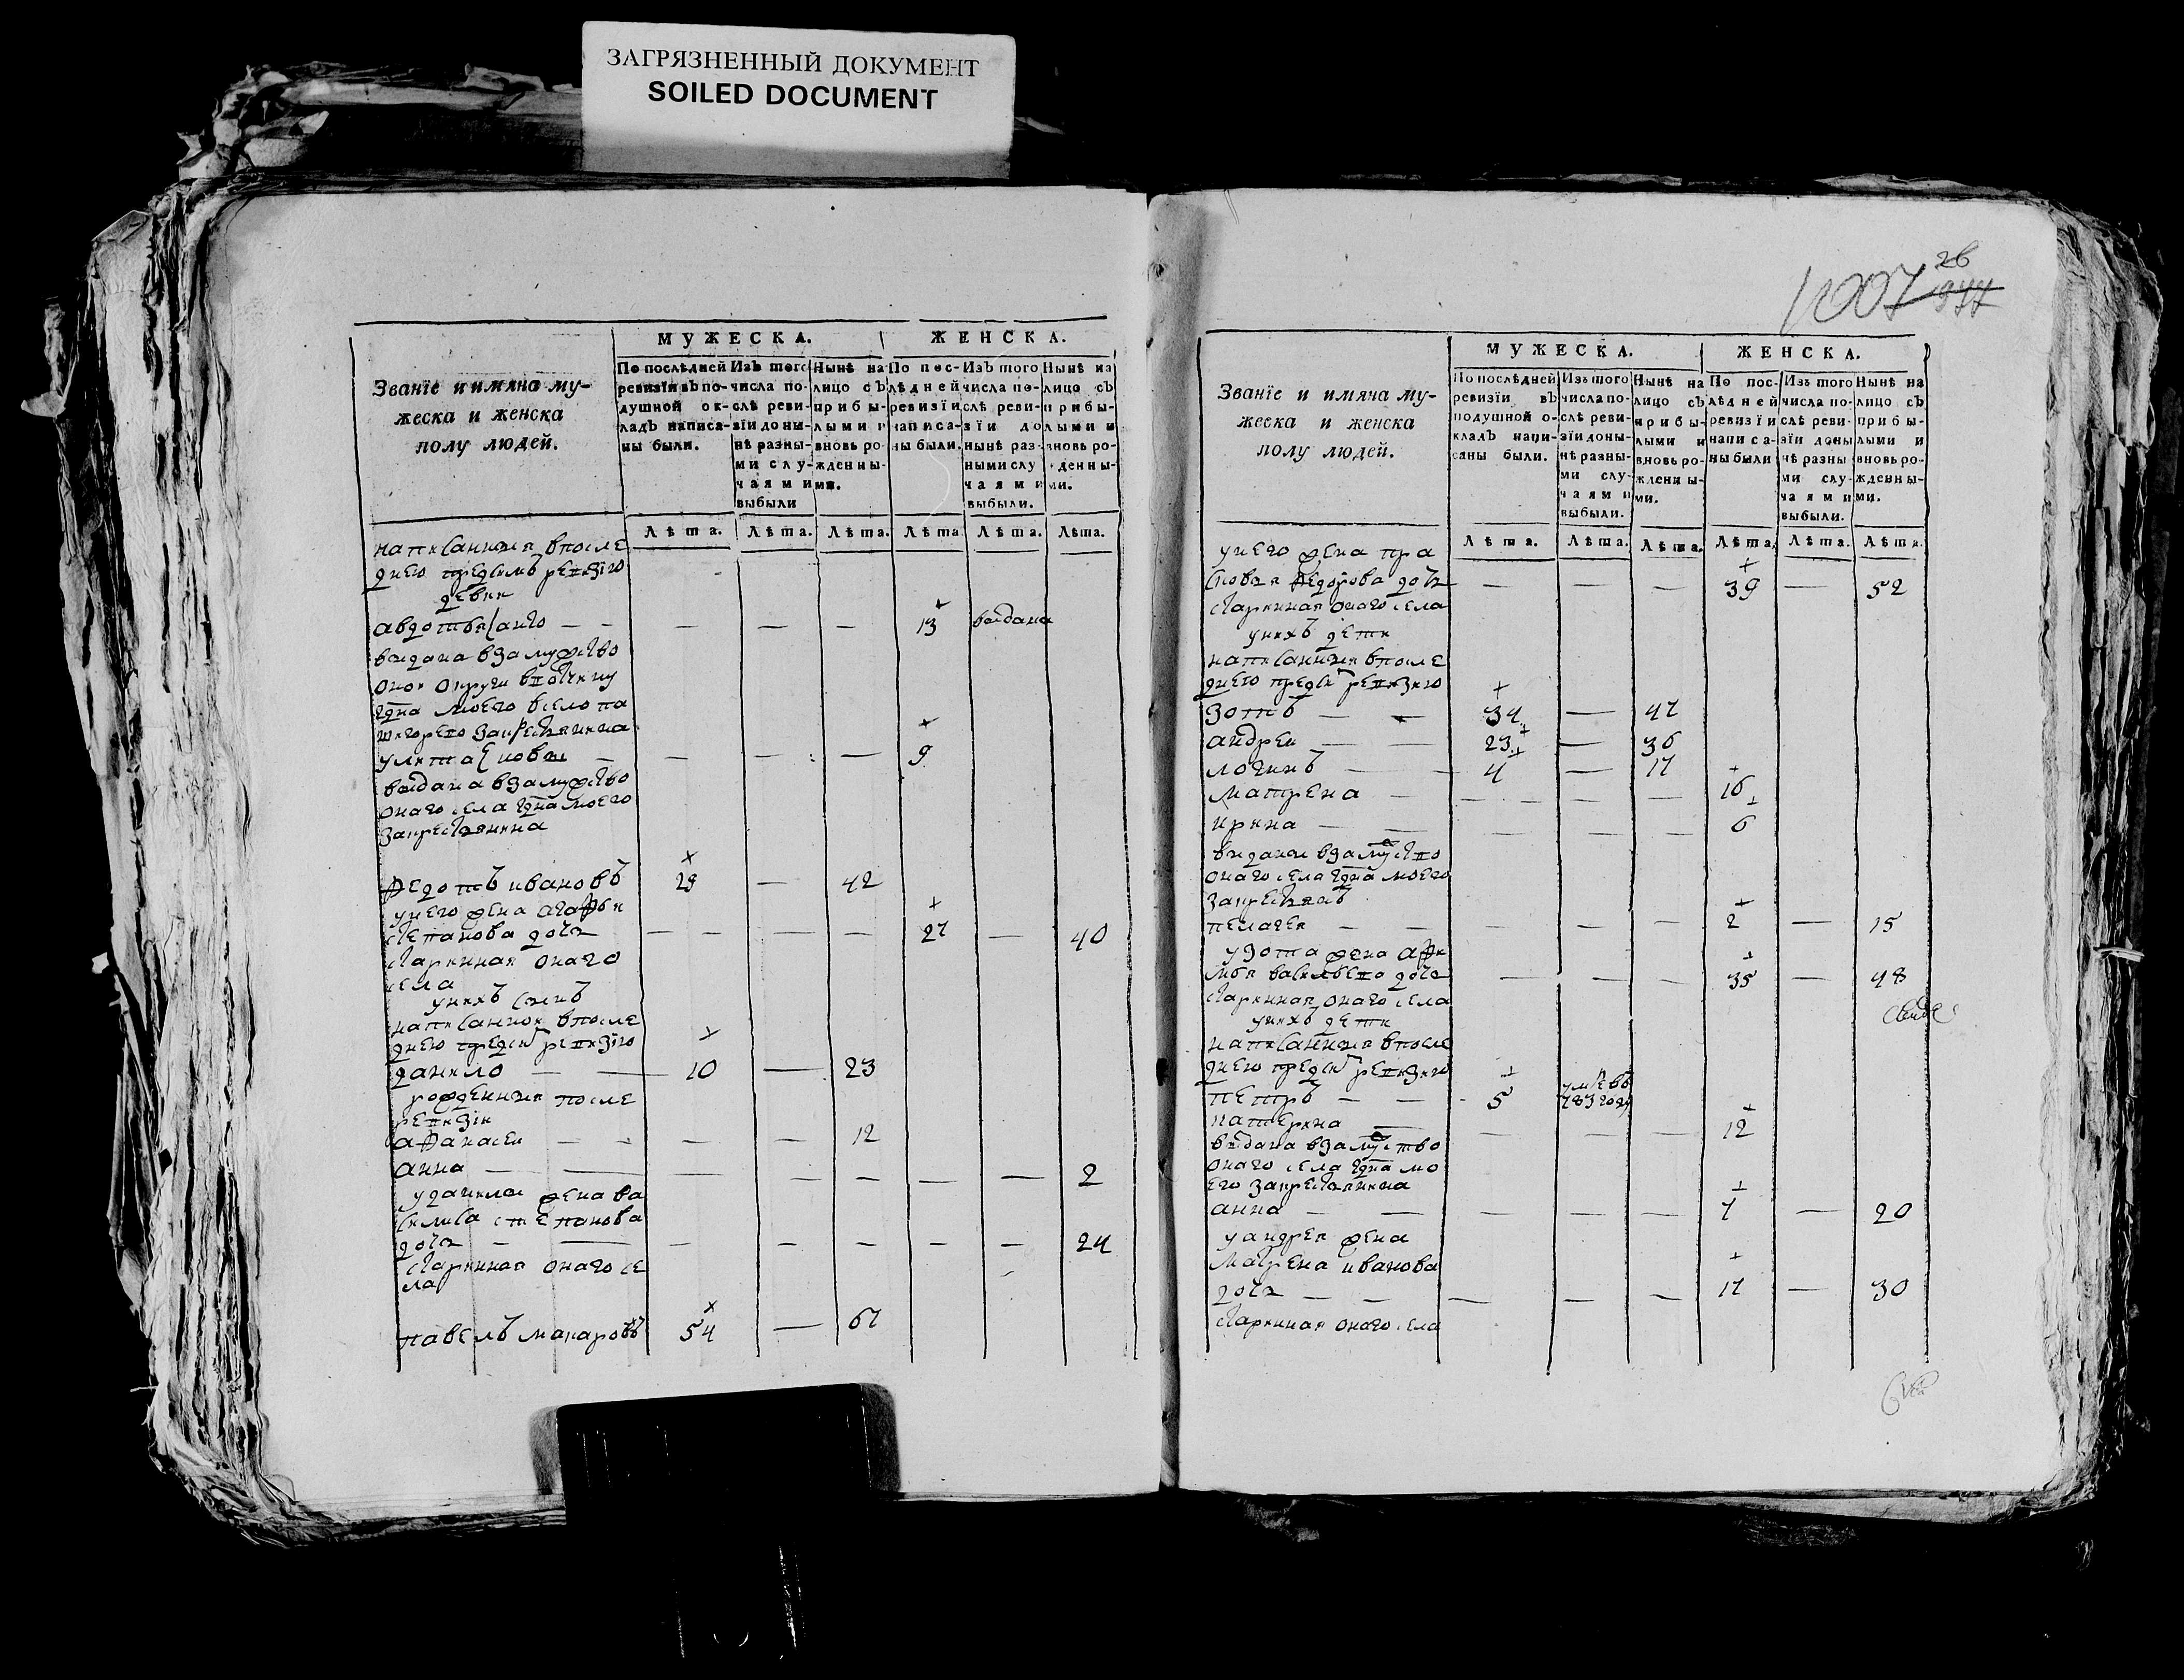 ЗАГРЯЗНЕННЫЙ ДОКУМЕНТ
SOILED DOCUMENT
Званїе и имяна му-
жеска и женска
полу людей.
МУЖЕСКА.
ЖЕНСКА.
По послѣдней
ревизїи въ по-
душной ок-
ладъ написа-
ны были.
Изъ того
числа по-
слѣ реви-
зїи доны-
нѣ разны-
ми слу-
чаями
выбыли
Нынѣ на
лицо съ
прибы-
лыми и
вновь ро-
жденны-
ми.
По пос-
лѣдней
ревизїи
написа-
ны были.
Изъ того
числа по-
слѣ реви-
зїи до
нынѣ раз-
ными слу
чаями
выбыли.
Нынѣ на
лицо съ
прибы-
лыми и
вновь ро-
жденны-
ми.
Лѣта. Лѣта. Лѣта. Лѣта Лѣта. Лѣта.
написанныя впосле
днею предъ симъ ревизїю
девки
авдотья — — — — — 13 выдана
выдана взамужство
оной округи вотчину
моего всело
улита — — — — 9
выдана взамужство
онаго села моего
закрестьянина
Федотъ ивановъ 29 — 42
унего жена агафья
степанова дочь — — — — 27 — 40
старинная онаго
села
унихъ сынъ
написанной впосле
днею предъ ревизїю
данило — — 10 — 23
рожденныя после
ревизїи
афанасеи — — — — 12
анна — — — — — — — 2
уданилы жена ва
силиса степанова
дочь — — — — — — — 24
старинная онаго се
ла
павелъ макаровъ 54 — 67
1007 977
26
Званїе и имяна му-
жеска и женска
полу людей.
МУЖЕСКА.
ЖЕНСКА.
По послѣдней
ревизїи въ
подушной о-
кладъ напи-
саны были.
Изъ того
числа по-
слѣ реви-
зїи доны-
нѣ разны-
ми слу-
чаями
выбыли.
Нынѣ на
лицо съ
прибы-
лыми и
вновь ро-
жденны-
ми.
По пос-
лѣдней
ревизїи
написа-
ны были
Изъ того
числа по-
слѣ реви-
зїи доны
нѣ разны-
ми слу-
чаями
выбыли.
Нынѣ на
лицо съ
прибы-
лыми и
вновь ро-
жденны-
ми.
Лѣта. Лѣта. Лѣта. Лѣта. Лѣта. Лѣта.
унего жена пра
сковья Федорова дочь — — — 39 — 52
старинная онаго села
унихъ дети
написанныя впосле
днею предъ ревизию
зотъ — — 34 — 47
андреи — — 23 — 36
логинъ — — 4 — 17
матрена — — — — 16
ирина — — — — — 6
выданы взамуство
онаго села моего
закрестьянъ
пелагея — — — — — 2 — 15
узота жена афи
мья васильева дочь — — — 35 — 48
старинная онаго села
унихъ дети
написанныя впосле
днею предъ ревизию
петръ — — 5 умре въ 783 году
катерина — — — — 12
выдана взамуство
онаго села мо
его закрестьянина
анна — — — — — 7 — 20
уандрея жена
матрена иванова
дочь — — — — — 17 — 30
старинная онаго села